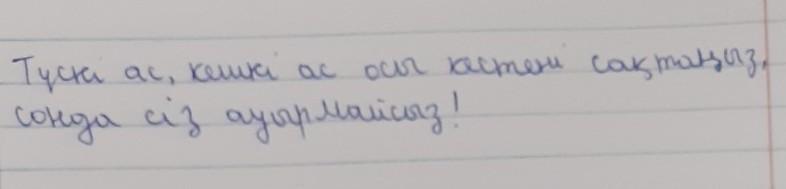 Түскі ас, кешкі ас осы кестені сақтаңыз,
сонда сіз ауырмайсыз!